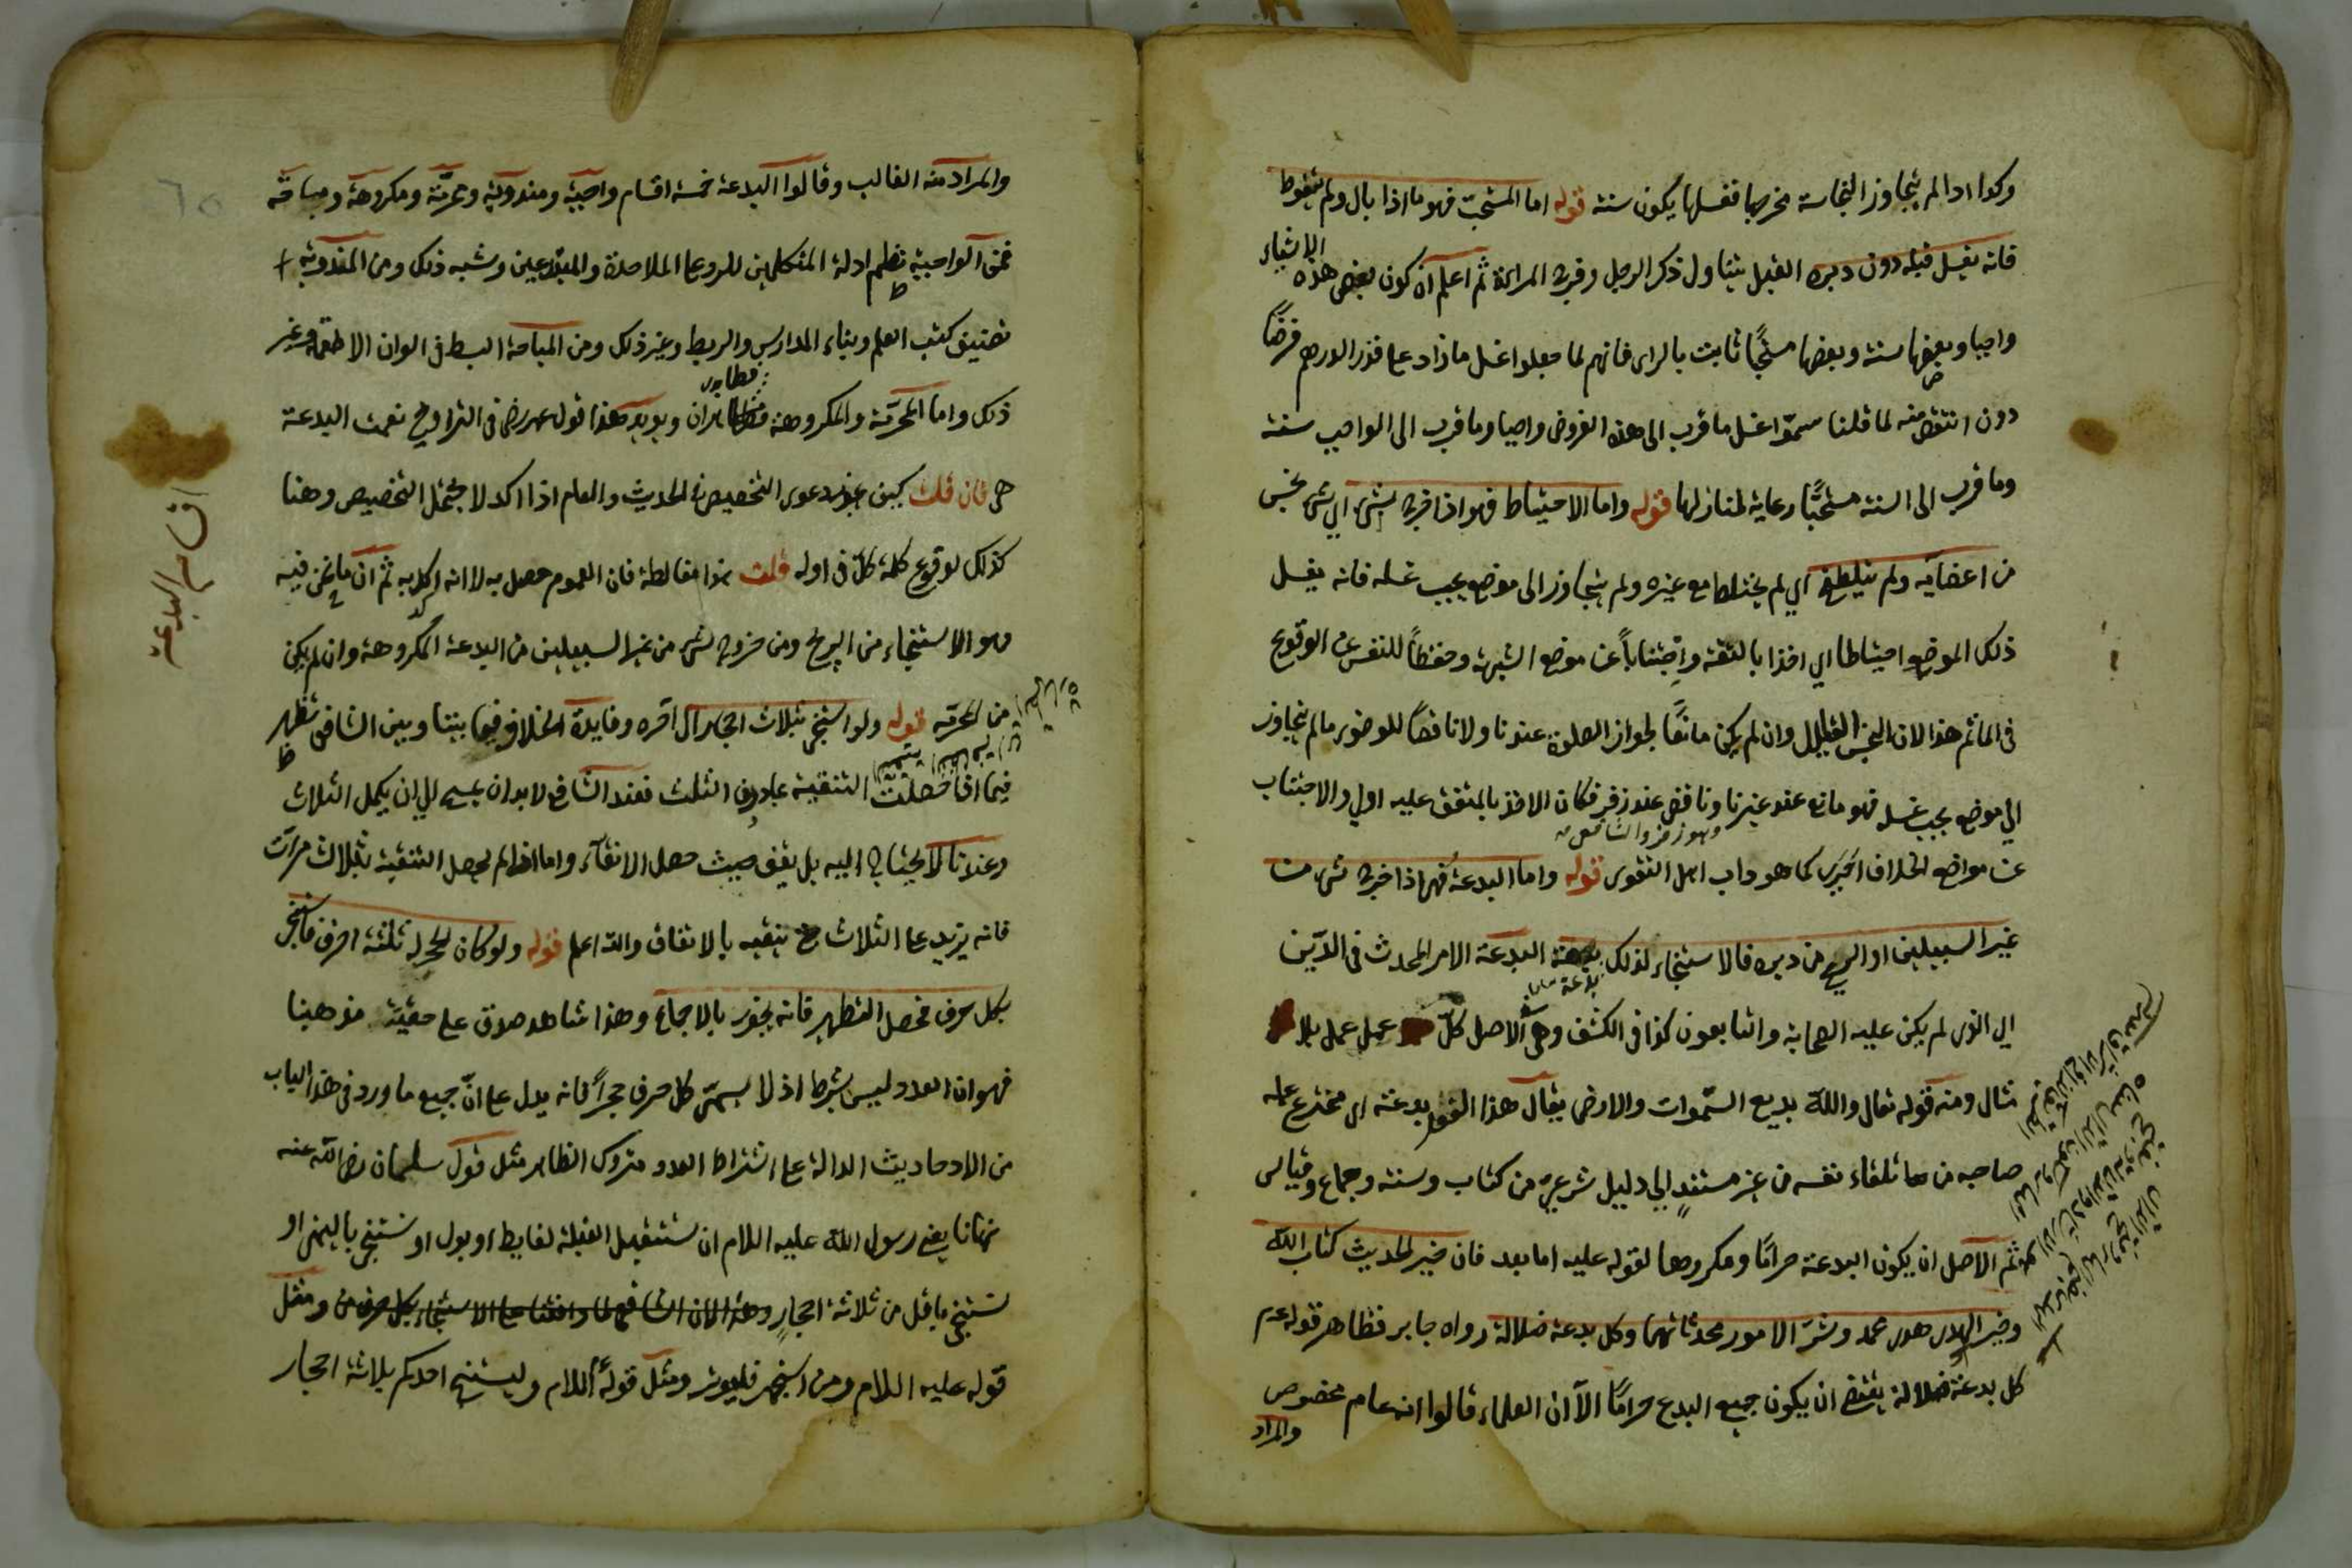 وكذا اذا لم يتجاوز النجاسة مخرجها فغسلها يكون سنة قوله اما المستحب فهو ما اذا بال ولم يتغوط
فانه يغسل قبله دون دبره القبل يتناول ذكر الرجل وفرج المراة ثم اعلم ان كون بعض هذه الاشياء
واجبا وبعضها سنة وبعضها مستحبًا ثابت بالراى فانهم لما جعلوا غسل ما زاد على قدر الدرهم فرضًا
دون انتقص منه لما قلنا سمّوا غسل ما قرب الى هذه الفروض واجبا وما قرب الى الواجب سنة
وما قرب الى السنة مستحبًّا رعاية لمنازلها قوله واما الاحتياط فهو اذا خرج شئ اي شئ نجس
من اعضائه ولم يتلطخ اي لم يختلط مع غيره ولم يتجاوز الى موضع يجب غسله فانه يغسل
ذلك الموضع احتياطا اي اخذا بالثقة واجتنابًا عن موضع الشبهة وحفظًا للنفس عن الوقوع
فى الماثم هذا لان النجس القليل وان لم يكن مانعًا لجواز الصلوة عندنا ولا ناقضًا للوضوء ما لم يتجاوز
الي موضع يجب غسله فهو مانع عند غيرنا وناقض عند زفر فكان الاخذ بالمتفق عليه اولى والاجتناب
وهو زفر والشافعى
عن مواضع الخلاف احرى كما هو داب اهل التقوى قوله واما البدعة فهو اذا خرج شئ من
غير السبيلين او الريح من دبره فالاستنجاء لذلك بدعة البدعة الامر المحدث فى الدّين
بدعة
اي الذى لم يكن عليه الصحابة والتابعون كذا فى الكشف وهى فى الاصل كلّ عمل عمل بلا
مثال ومنه قوله تعالى والله بديع السّموات والارض يقال هذا الفعل بدعة اى مخترع عمله
صاحبه من تلقاء نفسه من غير مستندٍ الي دليل شرعىّ من كتاب وسنة وجماع وقياس
ثم الاصل ان يكون البدعة حرامًا ومكروها لقوله عليه اما بعد فان خير الحديث كتاب الله
وخير الهدى هدى محمد وشرّ الامور محدثاتها وكل بدعة ضلالة رواه جابر فظاهر قوله عم
كل بدعة ضلالة يقتضى ان يكون جميع البدع حرامًا الّا ان العلماء قالوا انه عام مخصوص
والمراد
والمراد منه الغالب وقالوا البدعة خمسة اقسام واجبة ومندوبة ومحرّمة ومكروهة ومباحة
فمن الواجبة نظم ادلة المتكلمين للرد على الملاحدة والمبتدعين وشبه ذلك ومن المندوبة
تصنيف كتب العلم وبناء المدارس والربط وغير ذلك ومن المباحة البسط فى الوان الاطعمة وغير
ذلك واما المحرّمة والمكروهة فظاهران ويويد هذا قول عمر رض فى التراويح نعمت البدعة
هى فان قلت كيف يجوز دعوى التخصيص فى الحديث والعام اذا اكد لا يحتمل التخصيص وهنا
كذلك لوقوع كلمة كلّ فى اوله قلت هذا مغالطة فان العموم حصل به لا انه اكد به ثم ان ما نحن فيه
وهو الاستنجاء من الريح ومن خروج شئ من غير السبيلين من البدعة المكروهة وان لم يكن
من المحرّمة قوله ولو استنجى بثلاث احجار الى اخره وفايدة الخلاف فيما بيننا وبين الشافعى تظهر
فيما اذا حصلت التنقية بما دون الثلث فعند الشافعى لا بد ان يمسح الي ان يكمل الثلاث
وعندنا لا يحتاج اليه بل يقف حيث حصل الانقآء واما اذا لم يحصل التنقية بثلاث مرات
فانه يزيد على الثلاث حتى ينقيه بالاتفاق والله اعلم قوله ولو كان لحجر له ثلثة احرف فاستنجى
بكل حرف فحصل التطهير فانه يجوز بالاجماع وهذا شاهد صدق على حقيّة مذهبنا
فهو ان العدد ليس بشرط اذ لا يسمّى كل حرف حجرًا فانه يدل على انّ جميع ما ورد فى هذا الباب
من الاحاديث الدالة على اشتراط العدد متروك الظاهر مثل قول سلمان رضى الله عنه
نهانا يعنى رسول الله عليه السلام ان نستقبل القبلة لغايط او بول او نستنجى باليمنى او
نستنجى باقل من ثلاثة احجار ومثل
قوله عليه السلام ومن استجمر فليوتر ومثل قوله السلام وليستنج احدكم بثلاثة احجار
اقسام البدعة